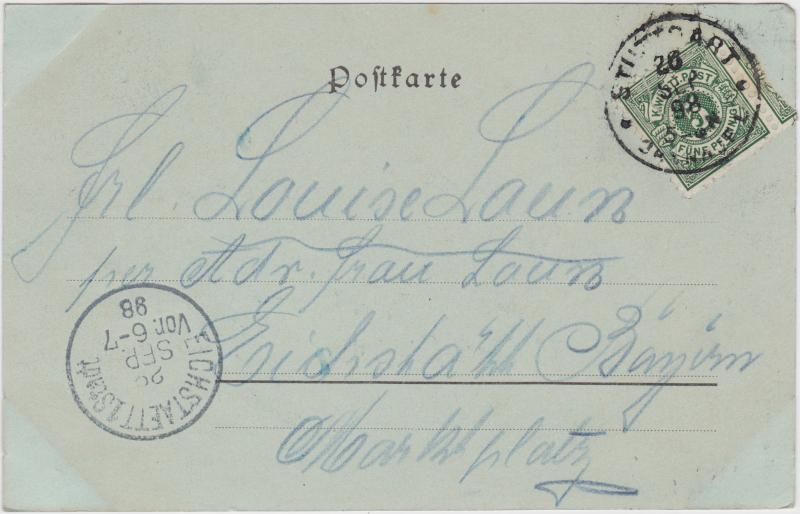 Postkarte
STUTTGART
20
SEP
98
K. WÜRTT. POST
5
FÜNF PFENNIG
Frl. Louise Laun
per Adr. Frau Laun
Eichstätt Bayern
Marktplatz
EICHSTAETT I. Stadt
SEP.
Vor. 6-7
98